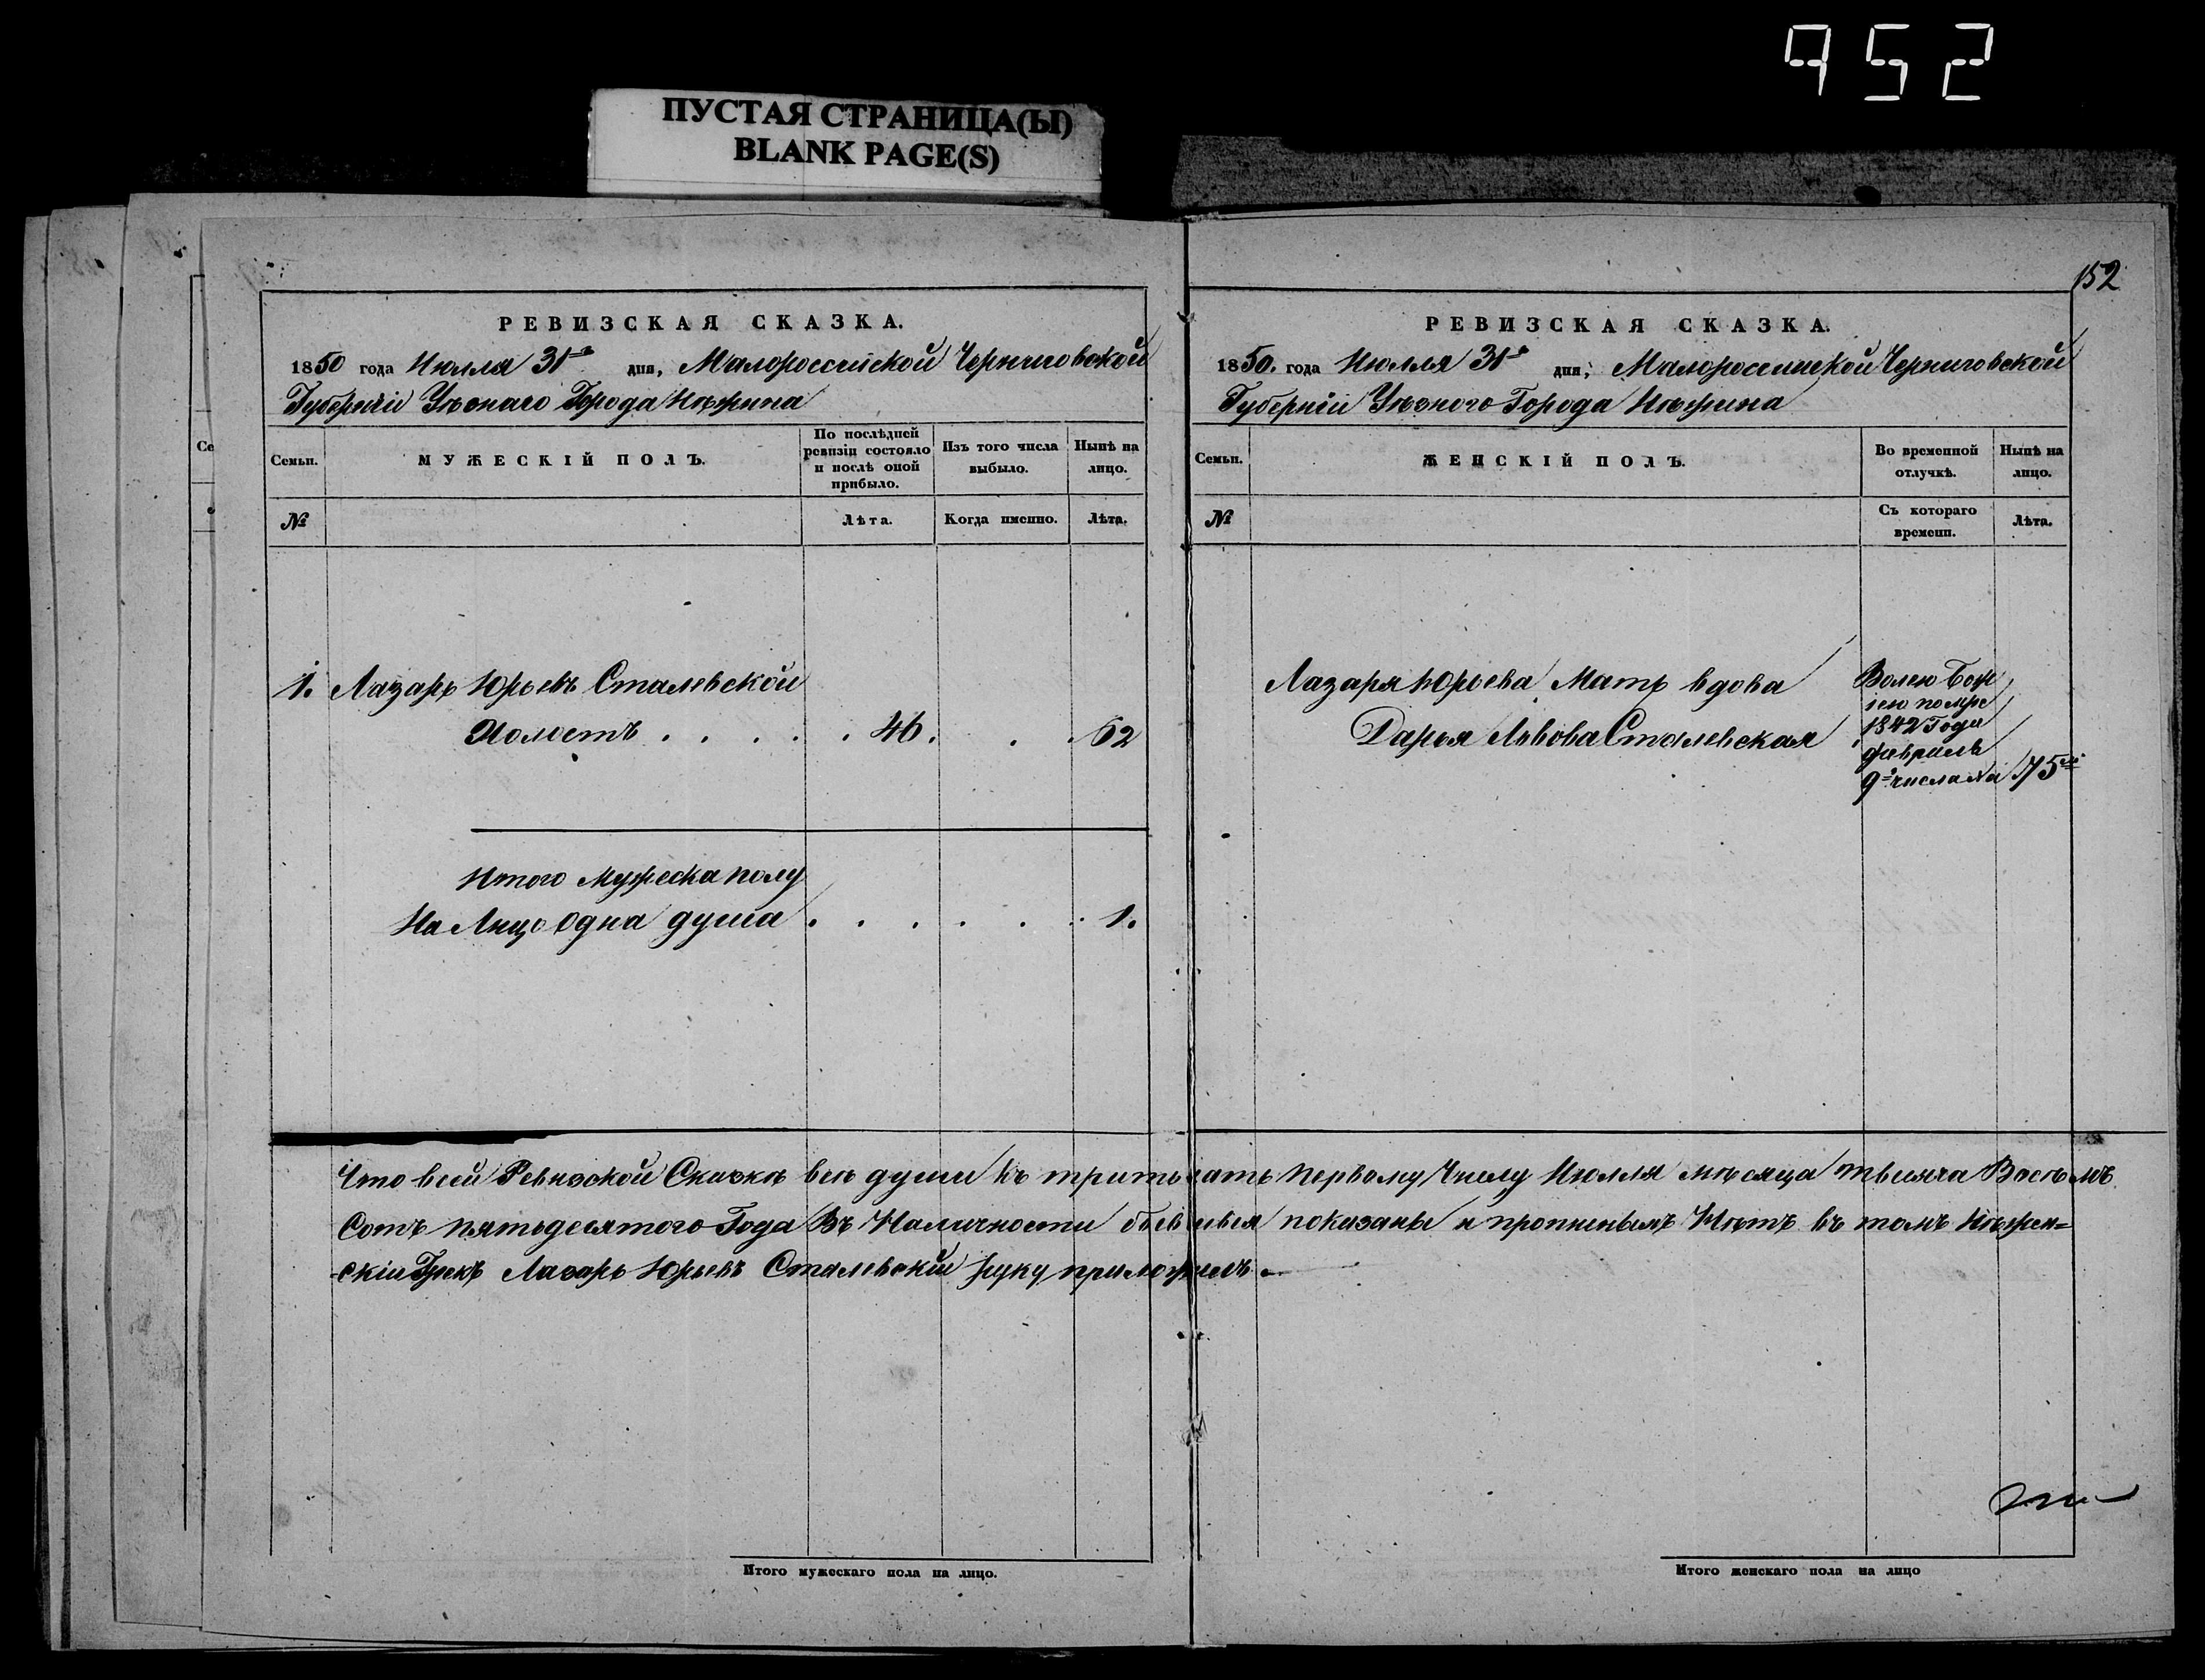 952
ПУСТАЯ СТРАНИЦА(Ы)
BLANK PAGE(S)
РЕВИЗСКАЯ СКАЗКА.
1850 года Июлля 31го дня, Малороссийской Черниговской
Губерніи Уѣзнаго Города Нѣжина
Семьи.
МУЖЕСКІЙ ПОЛЪ.
По послѣдней ревизіи состояло и послѣ оной прибыло.
Изъ того числа выбыло.
Нынѣ на лицо.
№
Лѣта.
Когда именно.
Лѣта.
1. Лазарь Юрьевъ Сталевской
Холостъ . . . . . 46. . . 62
Итого мужеска полу
На Лицо одна душа . . . . . . 1.
152
РЕВИЗСКАЯ СКАЗКА.
1850. года Июлля 31го дня, Малороссийской Черниговской
Губерніи Уѣзного Города Нѣжина
Семьи.
ЖЕНСКІЙ ПОЛЪ.
Во временной отлучкѣ.
Нынѣ на лицо.
№
Съ котораго времени.
Лѣта.
Лазаря Юрьева Мать вдова
Дарья Львова Сталевская
Волею Бож
іею помре
1842 Года
февраля
9го числа на 75мъ
Что всей Ревизской Сказкѣ всѣ души къ тритьцать первому Числу Июлля мѣсяца тысяча Восъмъ
Сотъ пятьдесятого Года Въ Наличности бывшыя показаны и пропиныхъ Нѣтъ въ томъ Нѣжен=
-скіи Грекъ Лазарь Юрьевъ Сталевскій руку приложилъ.
Итого мужескаго пола на лицо.
Итого женскаго пола на лицо
Се